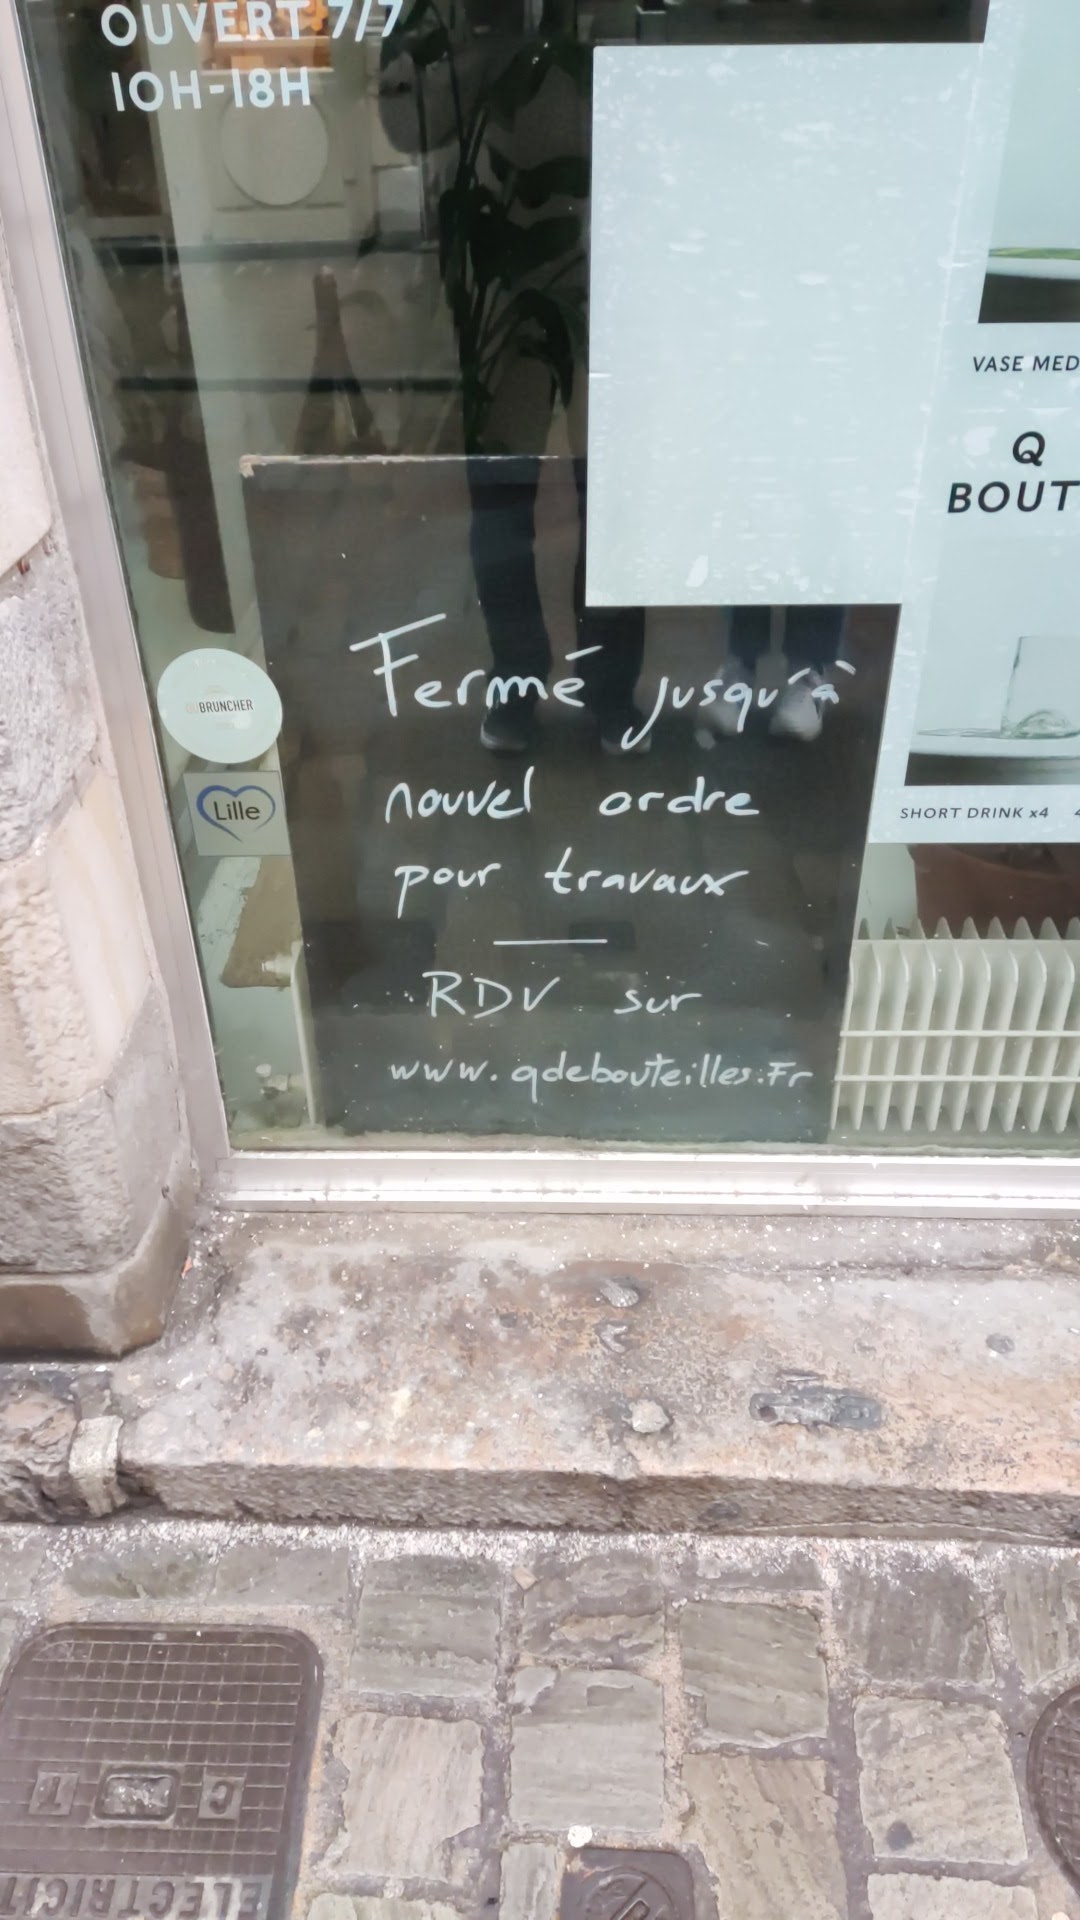 OUVERT 7/7
10H-18H
VASE MED
Q
BOUT
Fermé jusqu'à
nouvel ordre
pour travaux
RDV sur
www.qdebouteilles.Fr
BRUNCHER
Lille
SHORT DRINK x4
ELECTRICIT